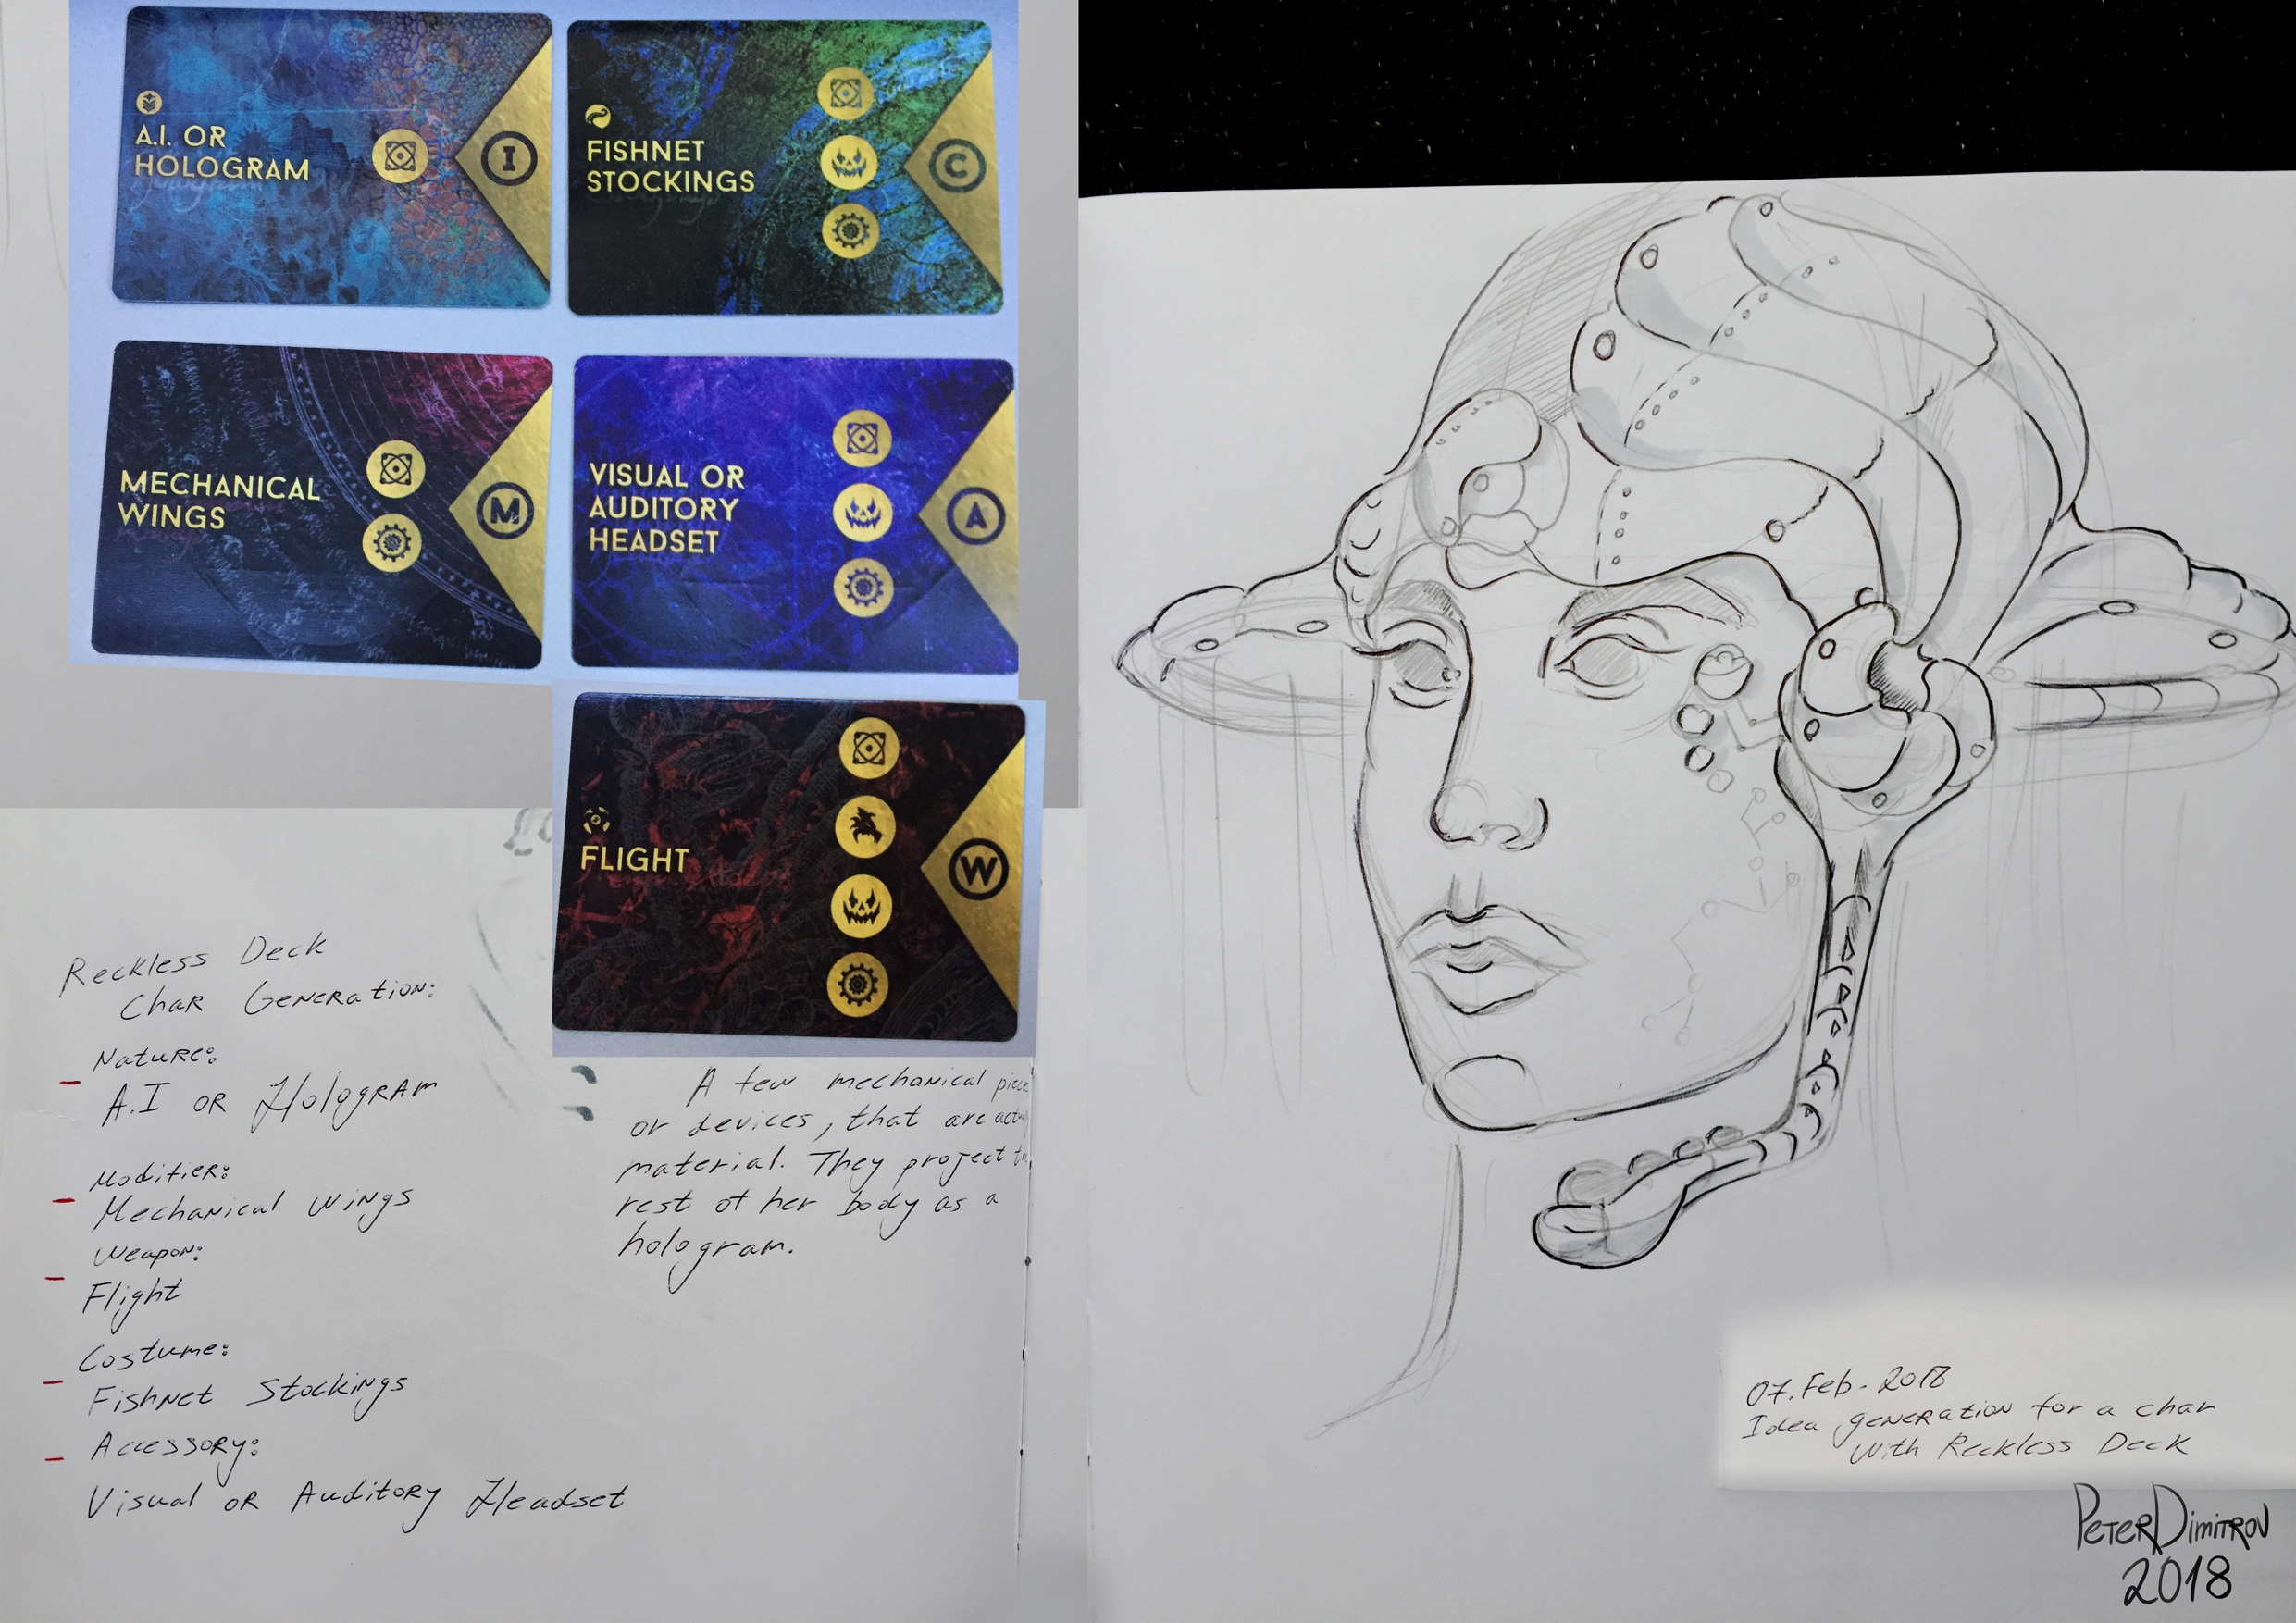 A.I. OR
HOLOGRAM
I
FISHNET
STOCKINGS
C
MECHANICAL
WINGS
M
VISUAL OR
AUDITORY
HEADSET
A
FLIGHT
W
Reckless Deck
Char Generation:
Nature:
A.I or Hologram
Modifier:
Mechanical wings
Weapon:
Flight
Costume:
Fishnet Stockings
Accessory:
Visual or Auditory Headset
A few mechanical
or devices, that are
material. They project
rest of her body as a
hologram.
07.Feb.2018
Idea generation for a char
with Reckless Deck
PeterDimitrov
2018